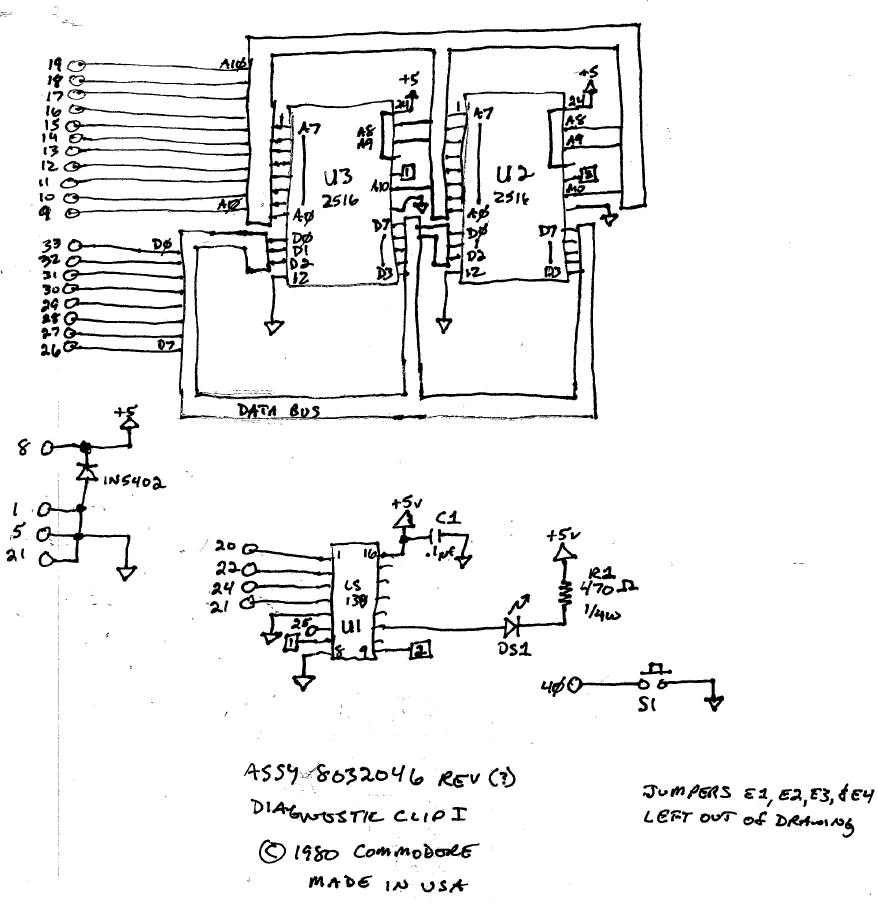 19 A10
18
17
16
15
14
13
12
11
10
9 A0
33 D0
32
31
30
29
28
27
26 D7
DATA BUS
+5
1 A7 24
A8
A9
U3
1
2516
A10
A0 D7
D0
D1
D2 D3
12
+5
1 A7 24
A8
A9
U2
2
2516
A10
A0 D7
D0
D2
12 D3
+5
8
1N5402
1
5
21
+5V
C1
.1µF
20 1 16
22
24 LS
21 138
25 U1
1
8 9 2
+5V
R1
470Ω
1/4W
DS1
40
S1
ASSY 8032046 REV (?)
DIAGNOSTIC CLIP I
© 1980 COMMODORE
MADE IN USA
JUMPERS E1, E2, E3, & E4
LEFT OUT OF DRAWING